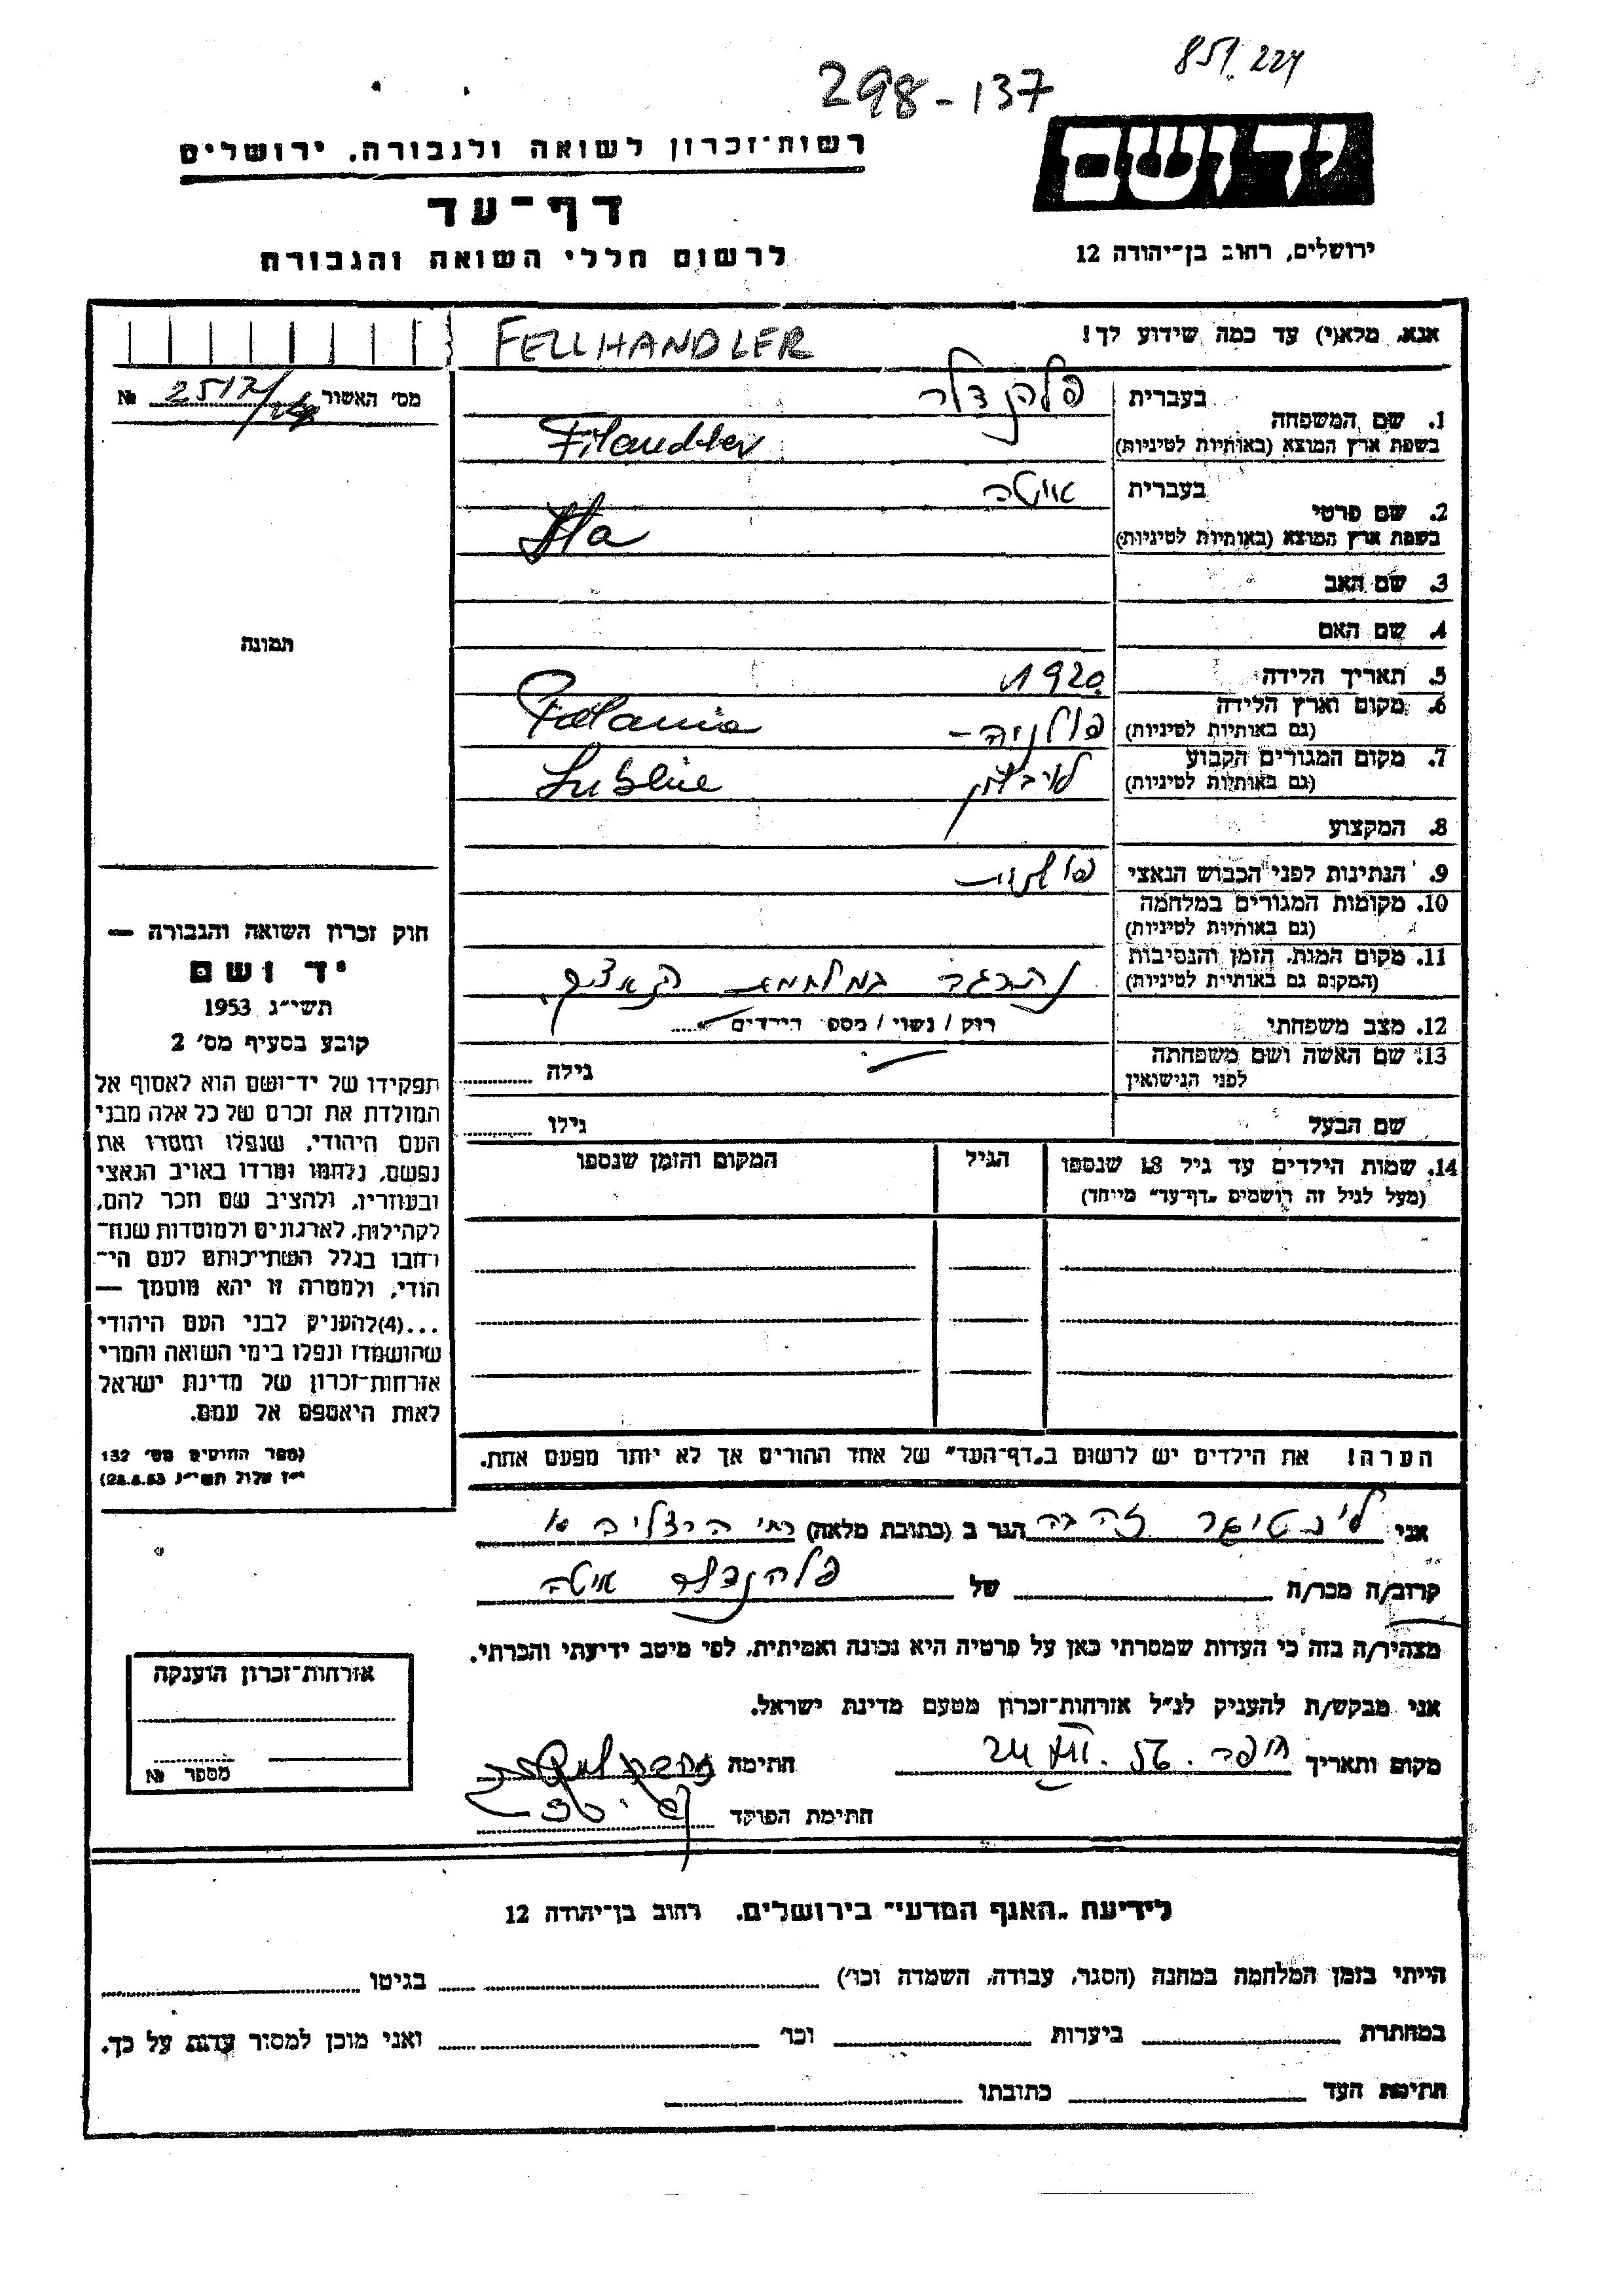 851.224
298-137
יד ושם
רשות־זכרון לשואה ולגבורה, ירושלים
דף־עד
לרשום חללי השואה והגבורה
ירושלים, רחוב בן־יהודה 12
אנא, מלא(י) עד כמה שידוע לך!
FELLHANDLER
מס׳ האשור № 2517/
1. שם המשפחה
בעברית פלהנדלר
בשפת ארץ המוצא (באותיות לטיניות) Filandler
2. שם פרטי
בעברית איטה
בשפת ארץ המוצא (באותיות לטיניות) Ita
3. שם האב
4. שם האם
תמונה
5. תאריך הלידה 1920
6. מקום וארץ הלידה
(גם באותיות לטיניות) פולניה - Polania
7. מקום המגורים הקבוע
(גם באותיות לטיניות) לובלין Lublin
8. המקצוע
9. הנתינות לפני הכבוש הנאצי פולנית
10. מקומות המגורים במלחמה
(גם באותיות לטיניות)
11. מקום המות, הזמן והנסיבות
(המקום גם באותיות לטיניות) נהרגה במלחמת הנאצים.
12. מצב משפחתי רוק / נשוי / מספר הילדים
13. שם האשה ושם משפחתה
לפני הנישואין גילה
שם הבעל גילו
14. שמות הילדים עד גיל 18 שנספו הגיל המקום והזמן שנספו
(מעל לגיל זה רושמים „דף־עד״ מיוחד)
חוק זכרון השואה והגבורה —
יד ושם
תשי״ג 1953
קובע בסעיף מס׳ 2
תפקידו של יד־ושם הוא לאסוף אל
המולדת את זכרם של כל אלה מבני
העם היהודי, שנפלו ומסרו את
נפשם, נלחמו ומרדו באויב הנאצי
ובעוזריו, ולהציב שם וזכר להם,
לקהילות, לארגונים ולמוסדות שנח־
רחבו בגלל השתייכותם לעם הי־
הודי, ולמטרה זו יהא מוסמך —
...(4)להעניק לבני העם היהודי
שהושמדו ונפלו בימי השואה והמרי
אזרחות־זכרון של מדינת ישראל
לאות היאספם אל עמם.
(ספר החוקים מס׳ 132
י״ז אלול תשי״ג 28.8.53)
הערה! את הילדים יש לרשום ב„דף־העד״ של אחד ההורים אך לא יותר מפעם אחת.
אני זהבה הגר ב (כתובת מלאה) רח׳ הרצליה
קרוב/ה מכר/ה של פלהנדלר איטה
מצהיר/ה בזה כי העדות שמסרתי כאן על פרטיה היא נכונה ואמיתית, לפי מיטב ידיעתי והכרתי.
אני מבקש/ת להעניק לנ״ל אזרחות־זכרון מטעם מדינת ישראל.
מקום ותאריך חיפה. 56. 24 חתימה
חתימת הפוקד
אזרחות־זכרון הוענקה
מספר №
לידיעת „האגף המדעי״ בירושלים, רחוב בן־יהודה 12
הייתי בזמן המלחמה במחנה (הסגר, עבודה, השמדה וכו׳) בגיטו
במחתרת ביערות וכו׳ ואני מוכן למסור עדות על כך.
חתימת העד כתובתו